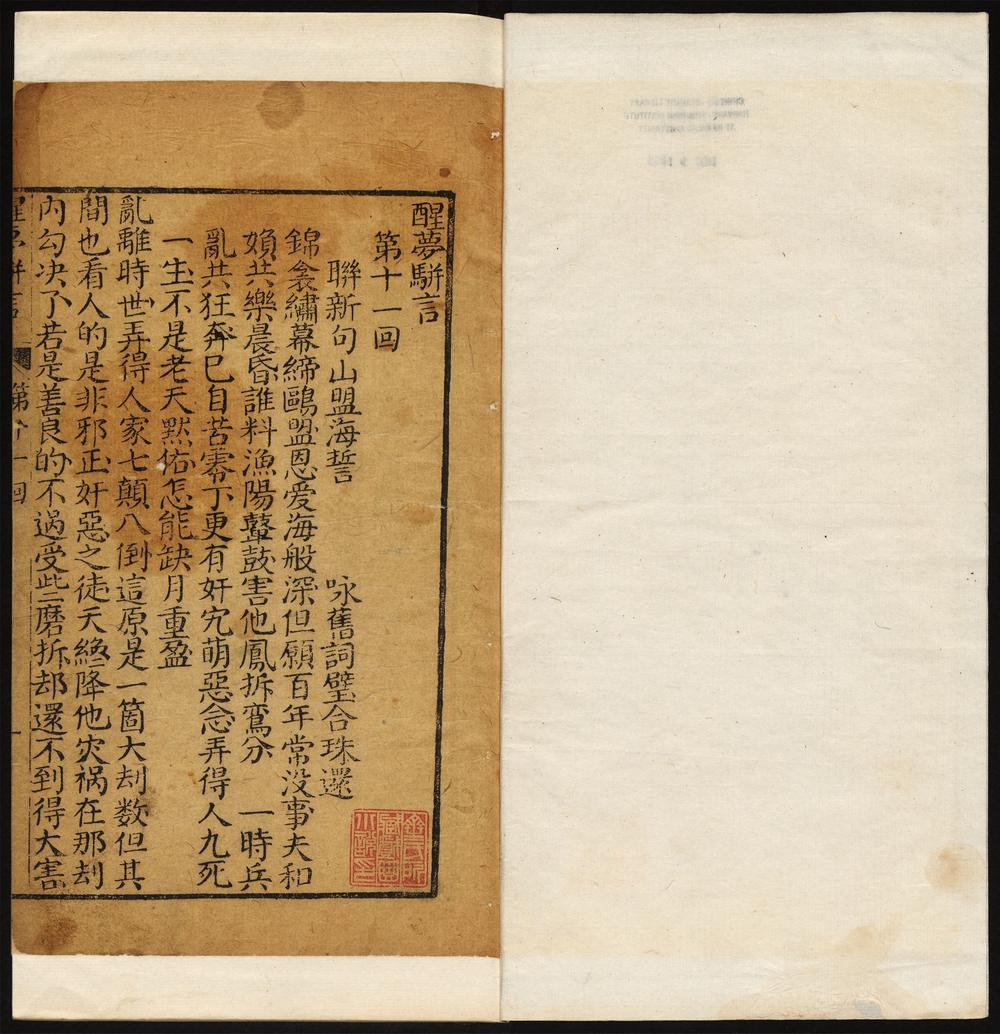 醒夢駢言
第十一回
聯新句山盟海誓　咏舊詞璧合珠還
錦衾繡幕締鷗盟恩爱海般深但願百年常没事夫和
婦共樂晨昏誰料漁陽鼙鼓害他鳳拆鸞分　一時兵
亂共狂奔已自苦零丁更有奸宄萌惡念弄得人九死
一生不是老天黙佑怎能缺月重盈
亂離時世弄得人家七顛八倒這原是一箇大刼数但其
間也看人的是非邪正奸惡之徒天縂降他灾禍在那刼
内勾决了若是善良的不過受些磨折却還不到得大害
醒夢駢言　第十一回　一